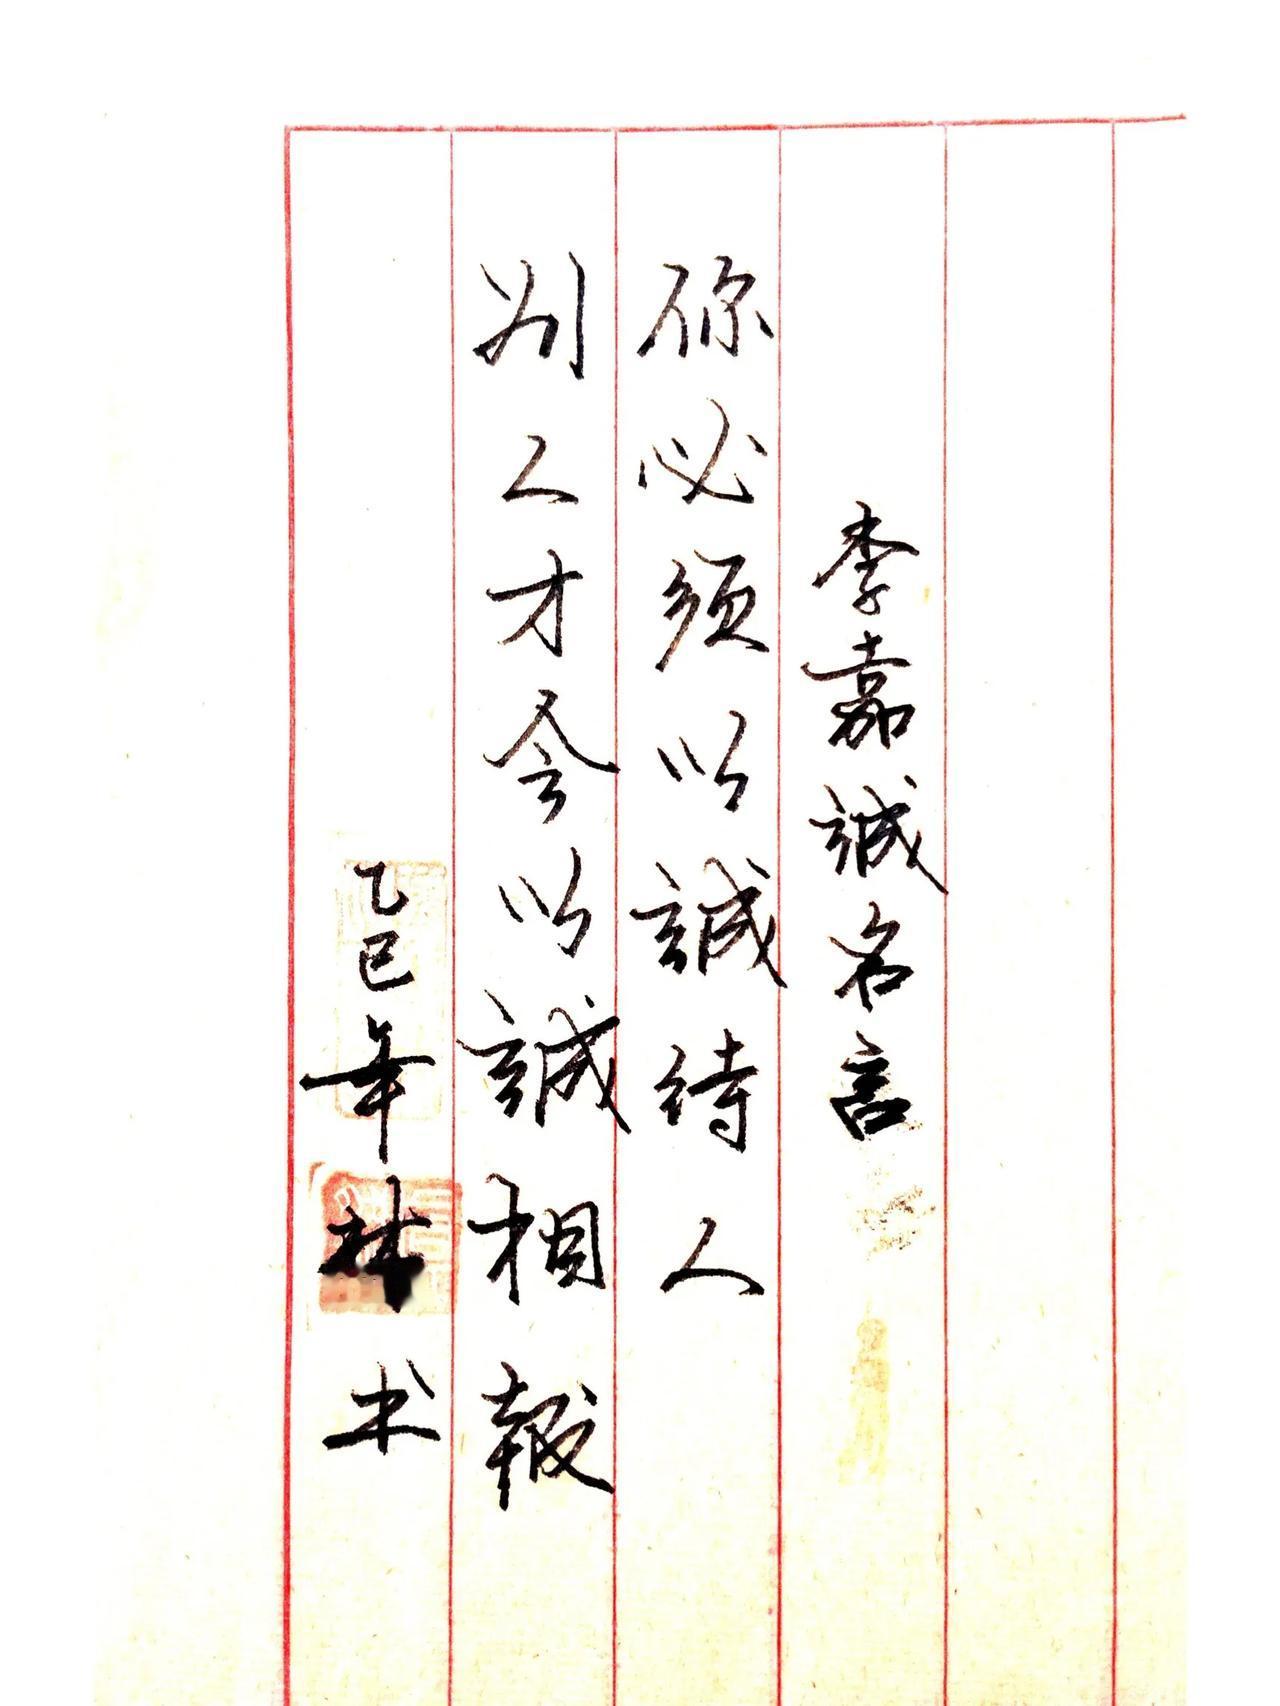 李嘉誠名言
你必须以誠待人
别人才会以誠相報
乙巳年林书